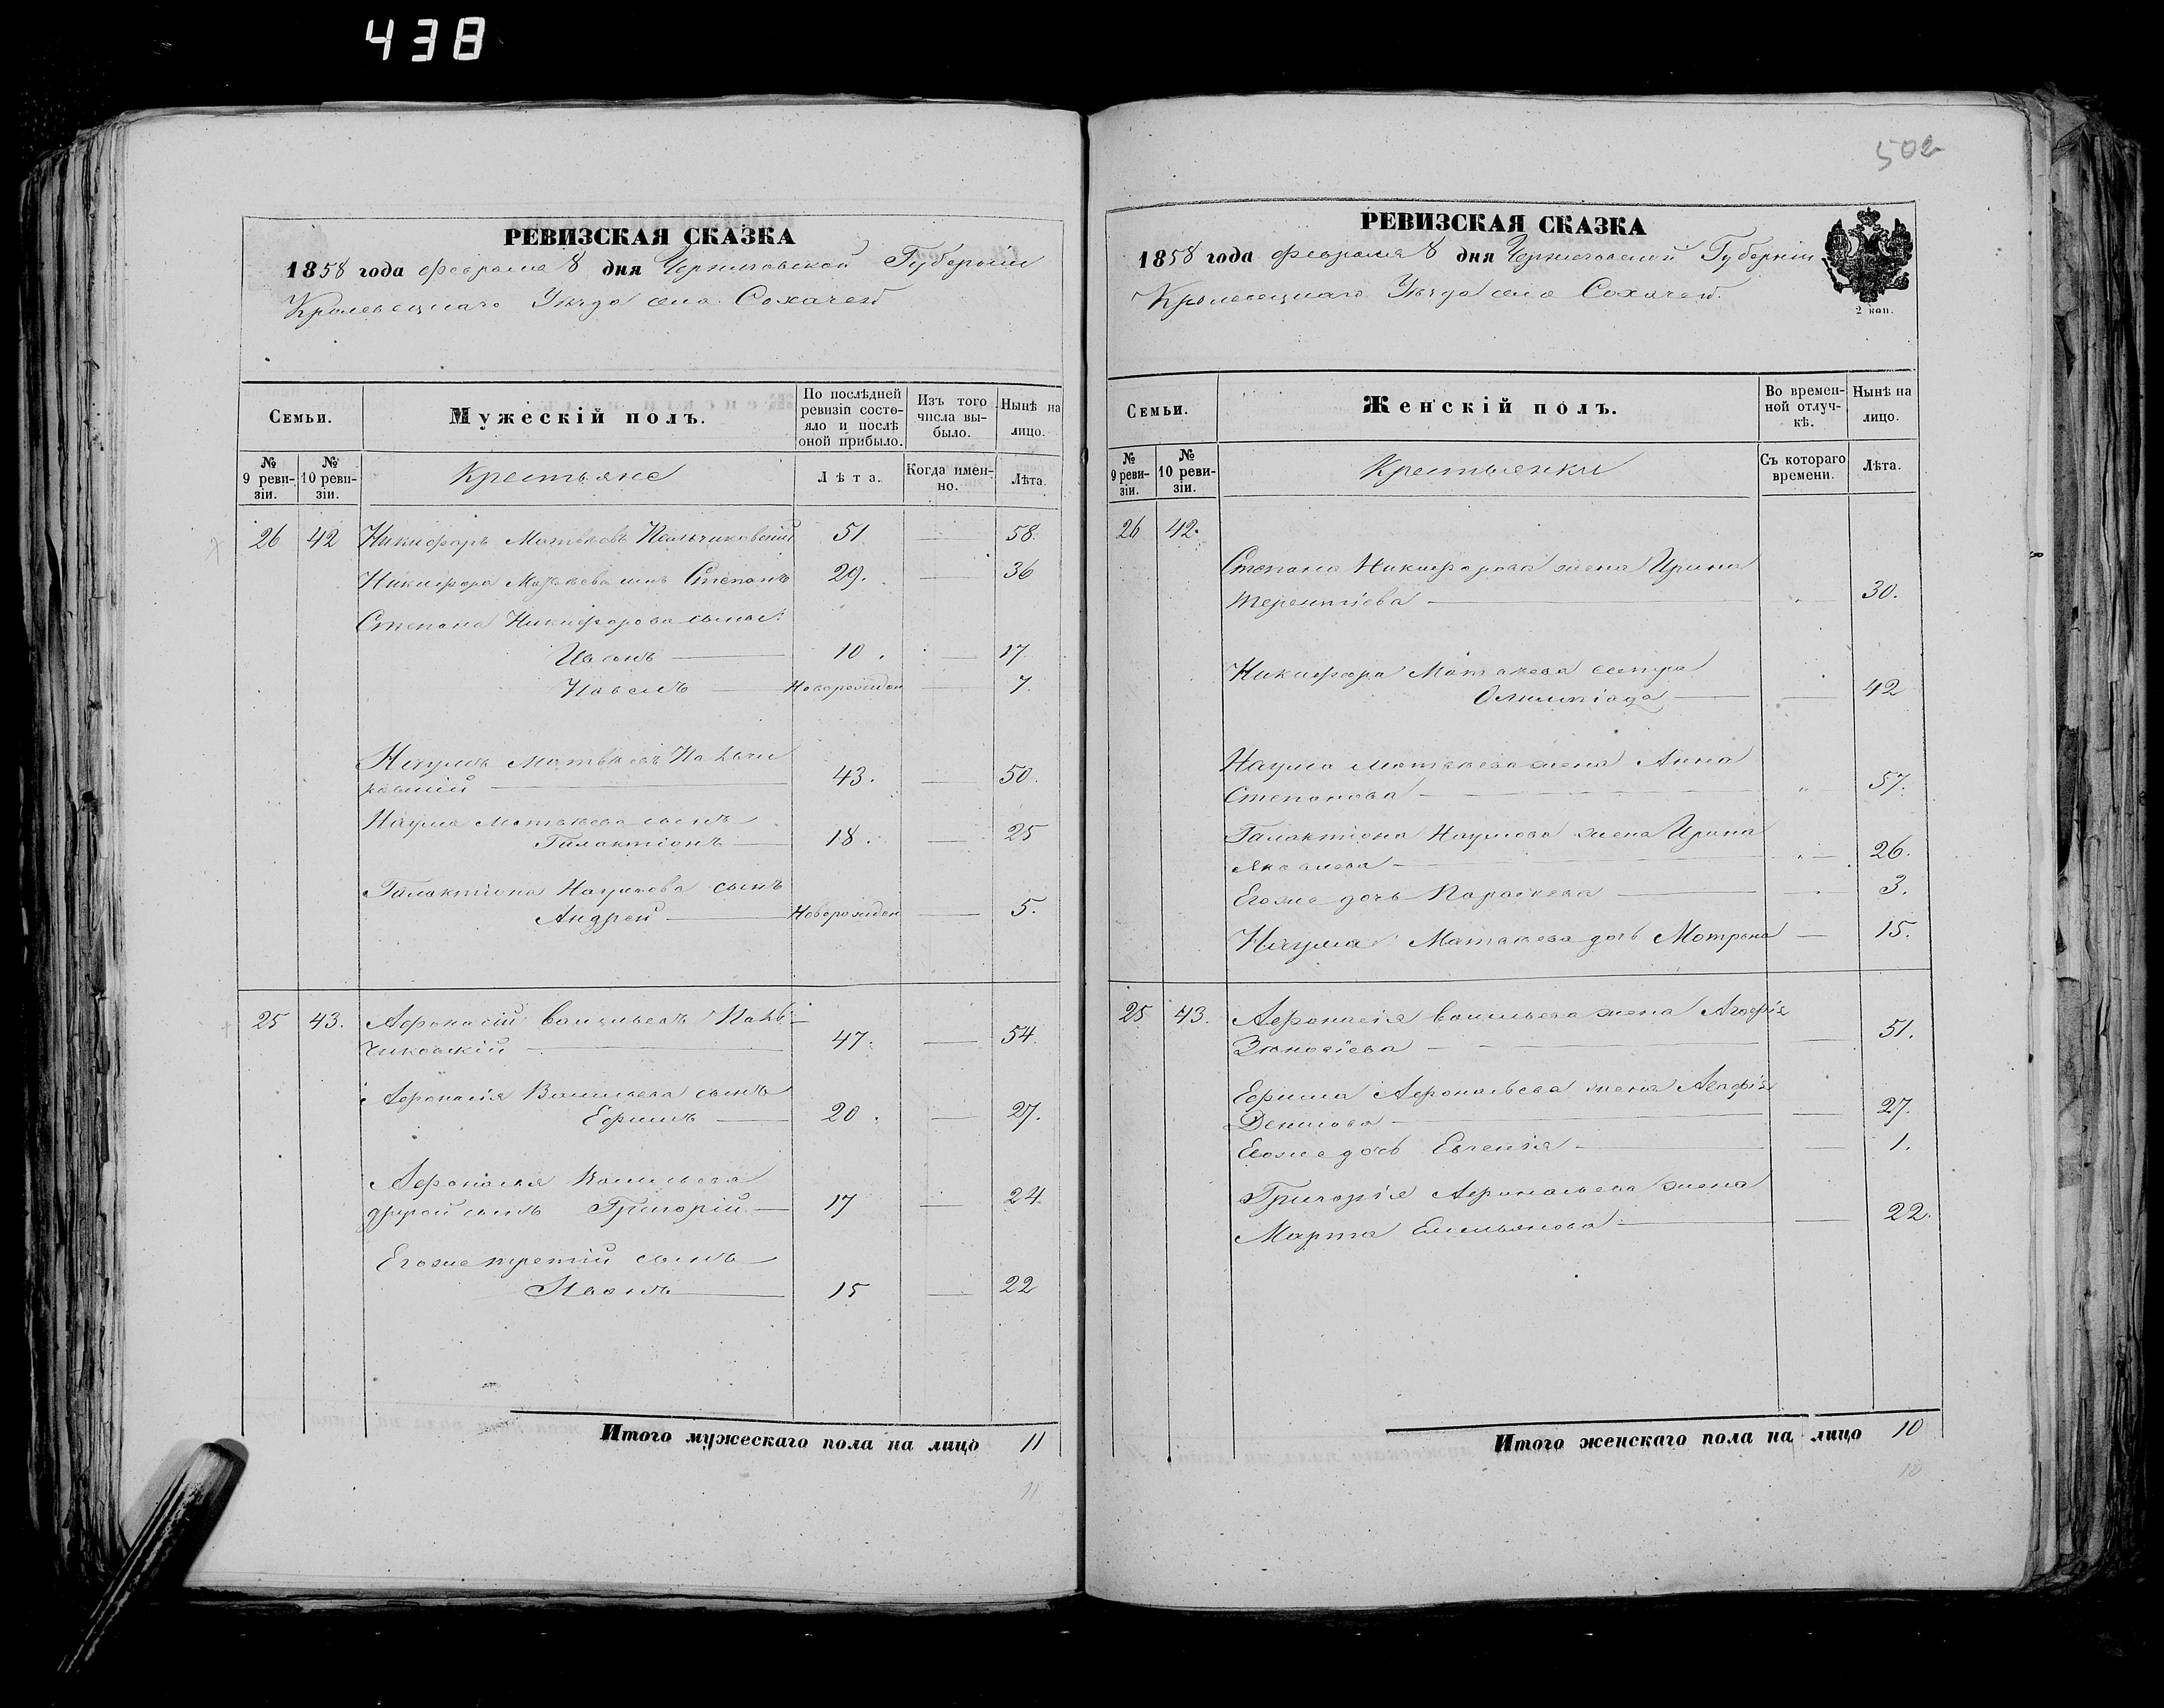 438
РЕВИЗСКАЯ СКАЗКА
1858 года февраля 8 дня Черниговской Губернии
Кролевецкаго Уѣзда села Сохачей
Семьи.
Мужескій полъ.
По послѣдней ревизіи состояло и послѣ оной прибыло.
Изъ того числа выбыло.
Нынѣ на лицо.
№ 9 ревизіи.
№ 10 ревизіи.
Крестьяне
Лѣта.
Когда именно.
Лѣта.
26 42 Никифоръ Матвѣевъ Пальчиковскій 51 — 58.
Никифора Матвѣева сынъ Степанъ 29. — 36
Степана Никифорова сыны:
Иванъ — 10. — 17
Павелъ — Новорожден — 7.
Наумъ Матвѣевъ Пальчи
ковскій — 43. — 50.
Наума Матвѣева сынъ
Галактіонъ — 18. — 25
Галактіона Наумова сынъ
Андрей — Новорожден — 5.
25 43. Афонасій Васильевъ Паль-
чиковскій — 47. — 54.
Афонасія Васильева сынъ
Ефимъ — 20. — 27.
Афонасія Васильева
другой сынъ Григорій — 17 — 24.
Егоже третій сынъ
Иванъ — 15 — 22
Итого мужескаго пола на лицо 11
11
502
РЕВИЗСКАЯ СКАЗКА
1858 года февраля 8 дня Черниговской Губерніи
Кролевецкаго Уѣзда села Сохачей.
2 коп.
Семьи.
Женскій полъ.
Во временной отлучкѣ.
Нынѣ на лицо.
№ 9 ревизіи.
№ 10 ревизіи.
Крестьянки
Съ котораго времени.
Лѣта.
26 42.
Степана Никифорова жена Ирина
Терентіева — 30.
Никифора Матвѣева сестра
Олимпіада — 42
Наума Матвѣева жена Анна
Степанова — 57.
Галактіона Наумова жена Ирина
Яковлева — 26.
Егоже дочь Параскева — 3.
Наума Матвѣева дочь Мотрона — 15.
25 43. Афонасія Васильева жена Агафія
Зиновіева — 51.
Ефима Афонасьева жена Агафія
Денисова — 27.
Егоже дочь Евгенія — 1.
Григорія Афонасьева жена
Марта Емельянова — 22.
Итого женскаго пола на лицо 10
10